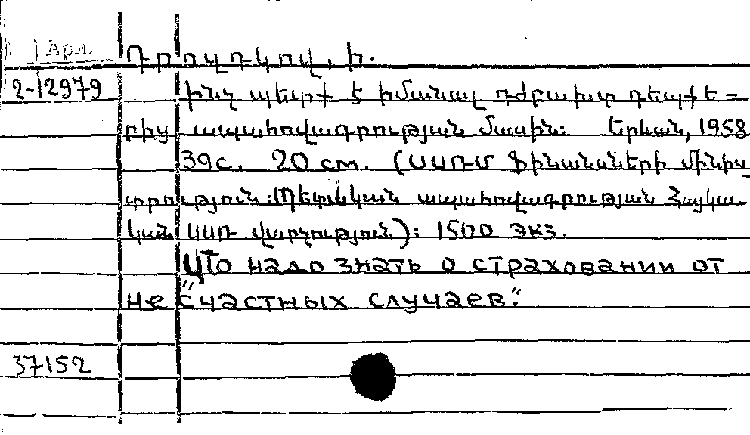 Арм. Դրովդկով, Ի.
2-12979 Ինչ պետք է իմանալ դժբախտ դեպքե=
րից ապահովագրության մասին: Երևան, 1958
39с. 20 cm. (ՍՍՌՄ Ֆինանսների մինիս
տրություն: Պետական ապահովագրության Հայկա-
կան ՍՍՌ վարչություն): 1500 экз.
Что надо знать о страховании от
не "счастных случаев".
37152